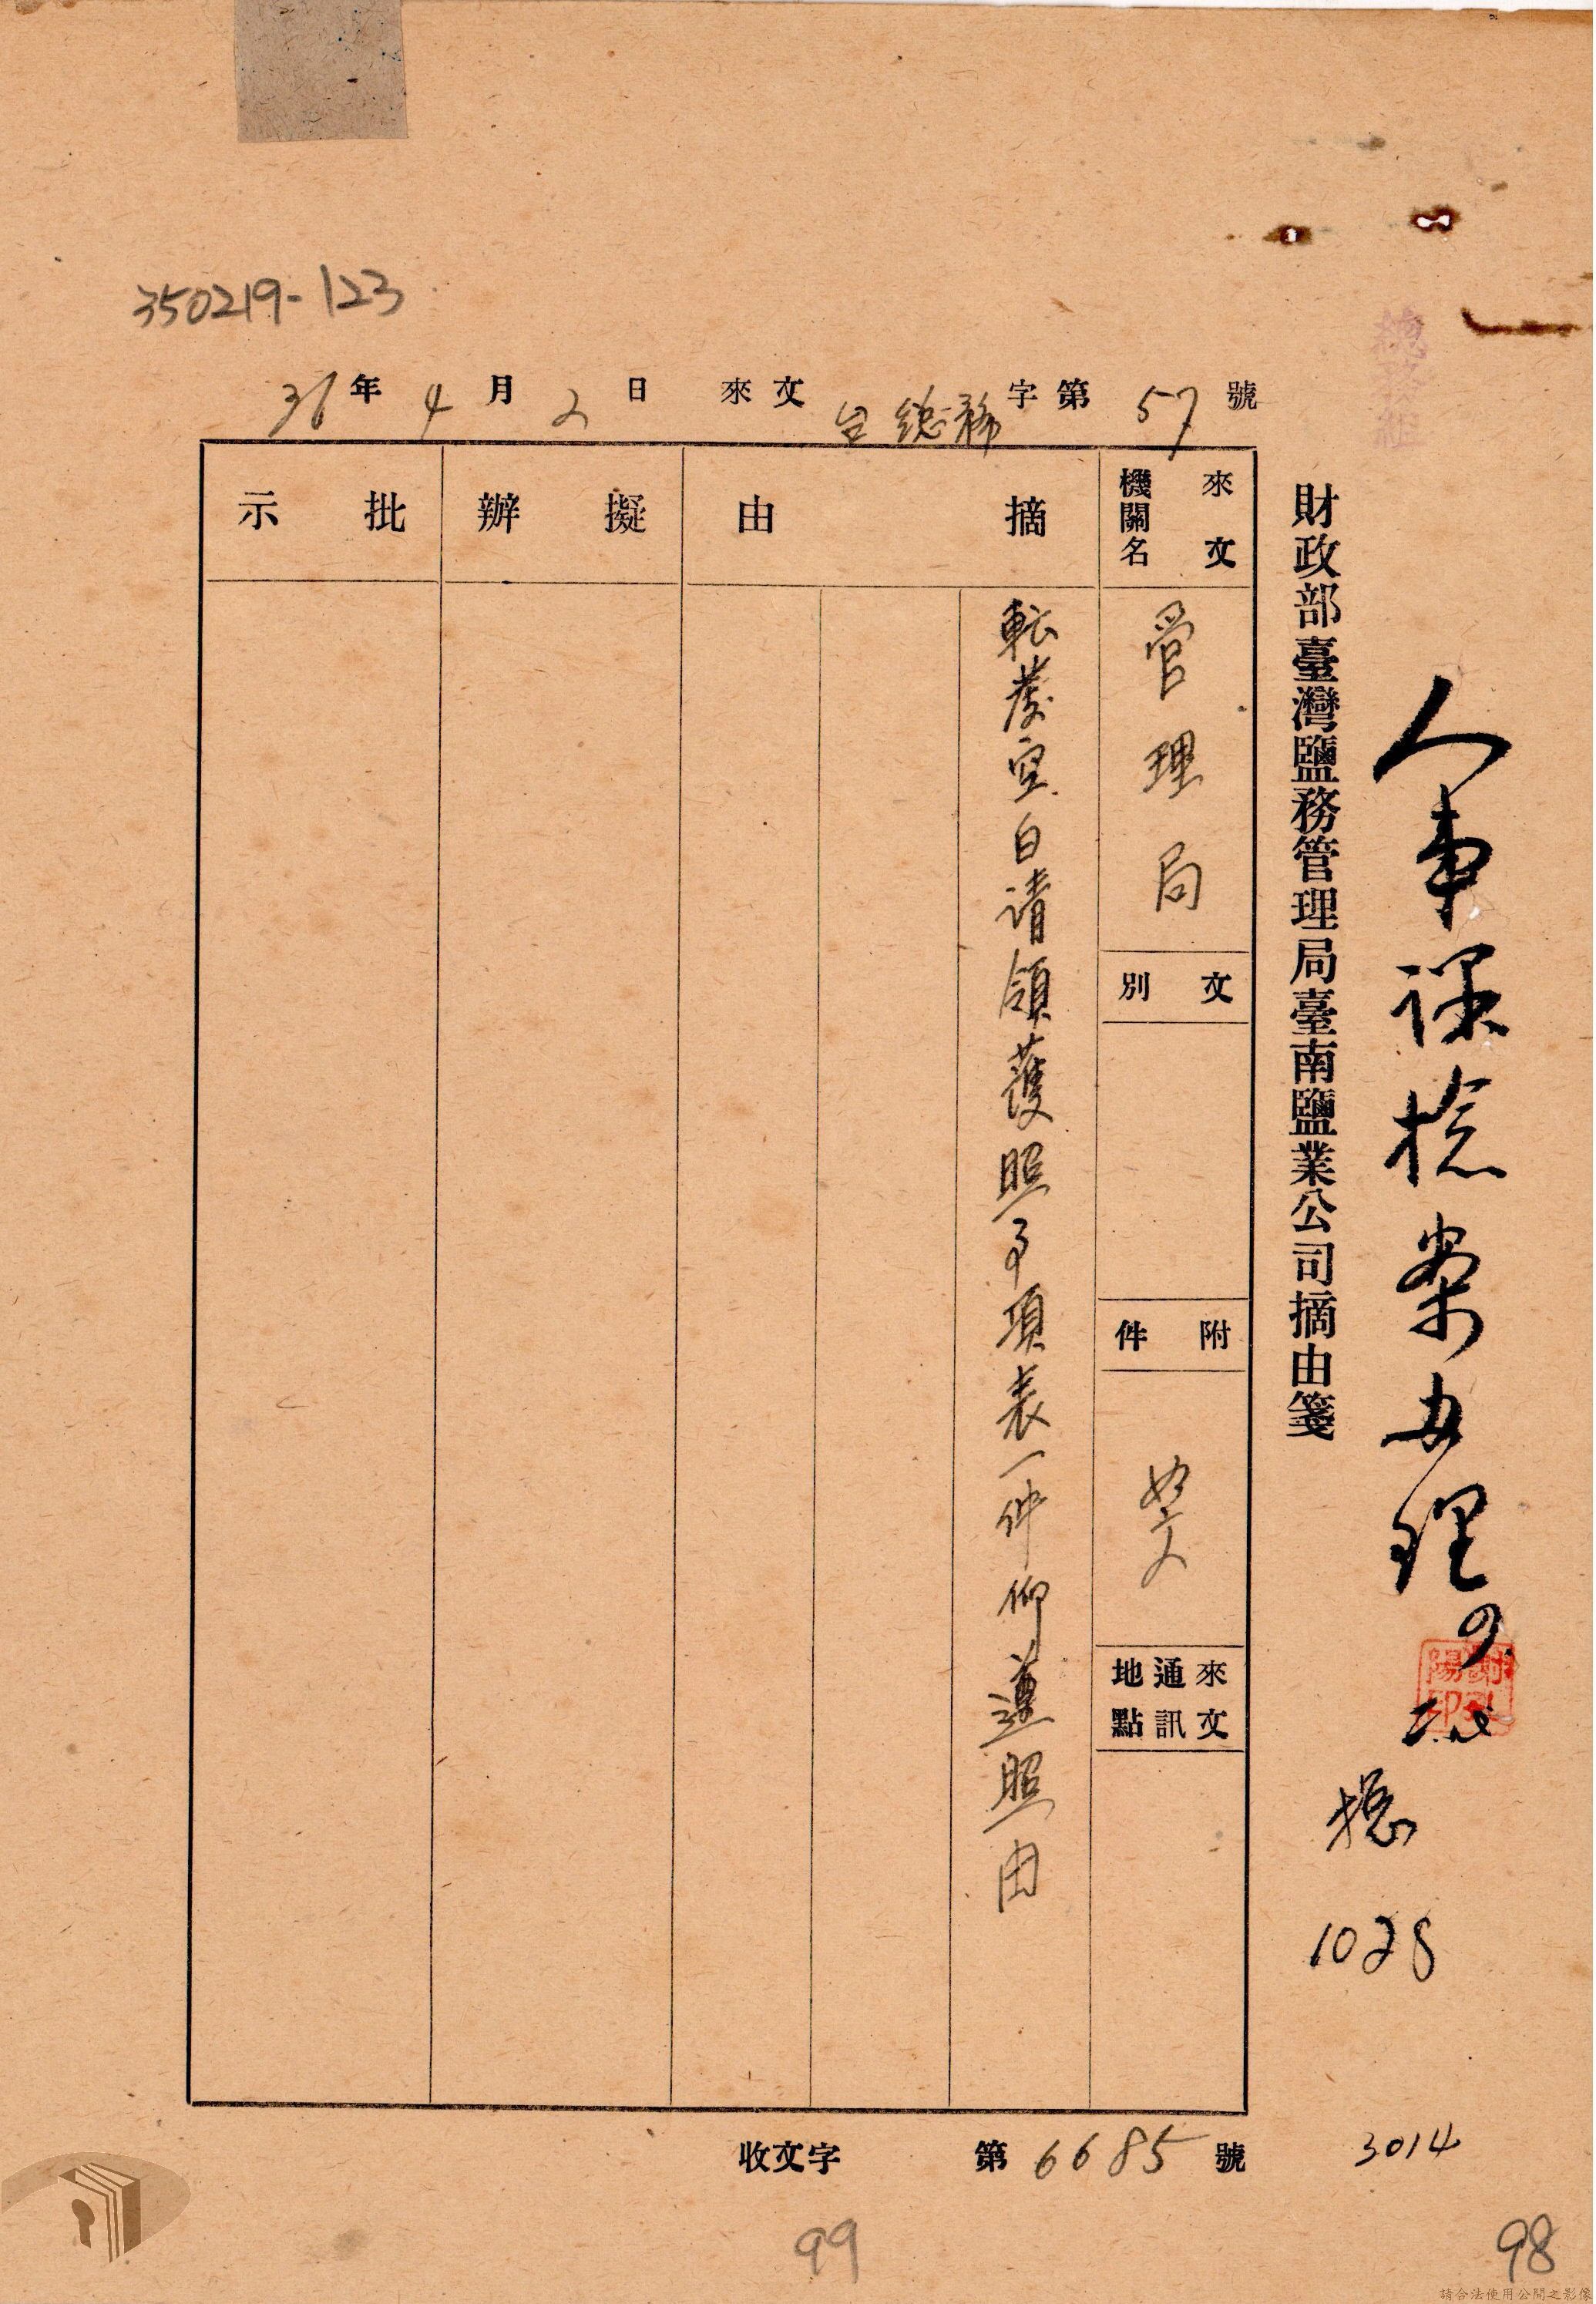 350219-123
總務組
36年4月2日 來文 台總務字第57號
財政部臺灣鹽務管理局臺南鹽業公司摘由箋
人事課檢案辦理
總
1028
3014
來文機關名
管理局
文別
附件
如文
來文通訊地點
摘由
転發空白请領護照事項表一件仰遵照由
擬辦
批示
收文字 第6685號
99
98
請合法使用公開之影像